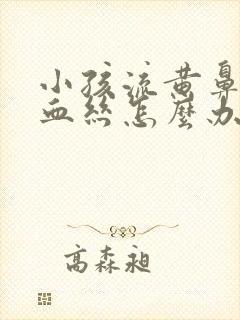 小孩流黄鼻
血丝怎麽办
高森昶